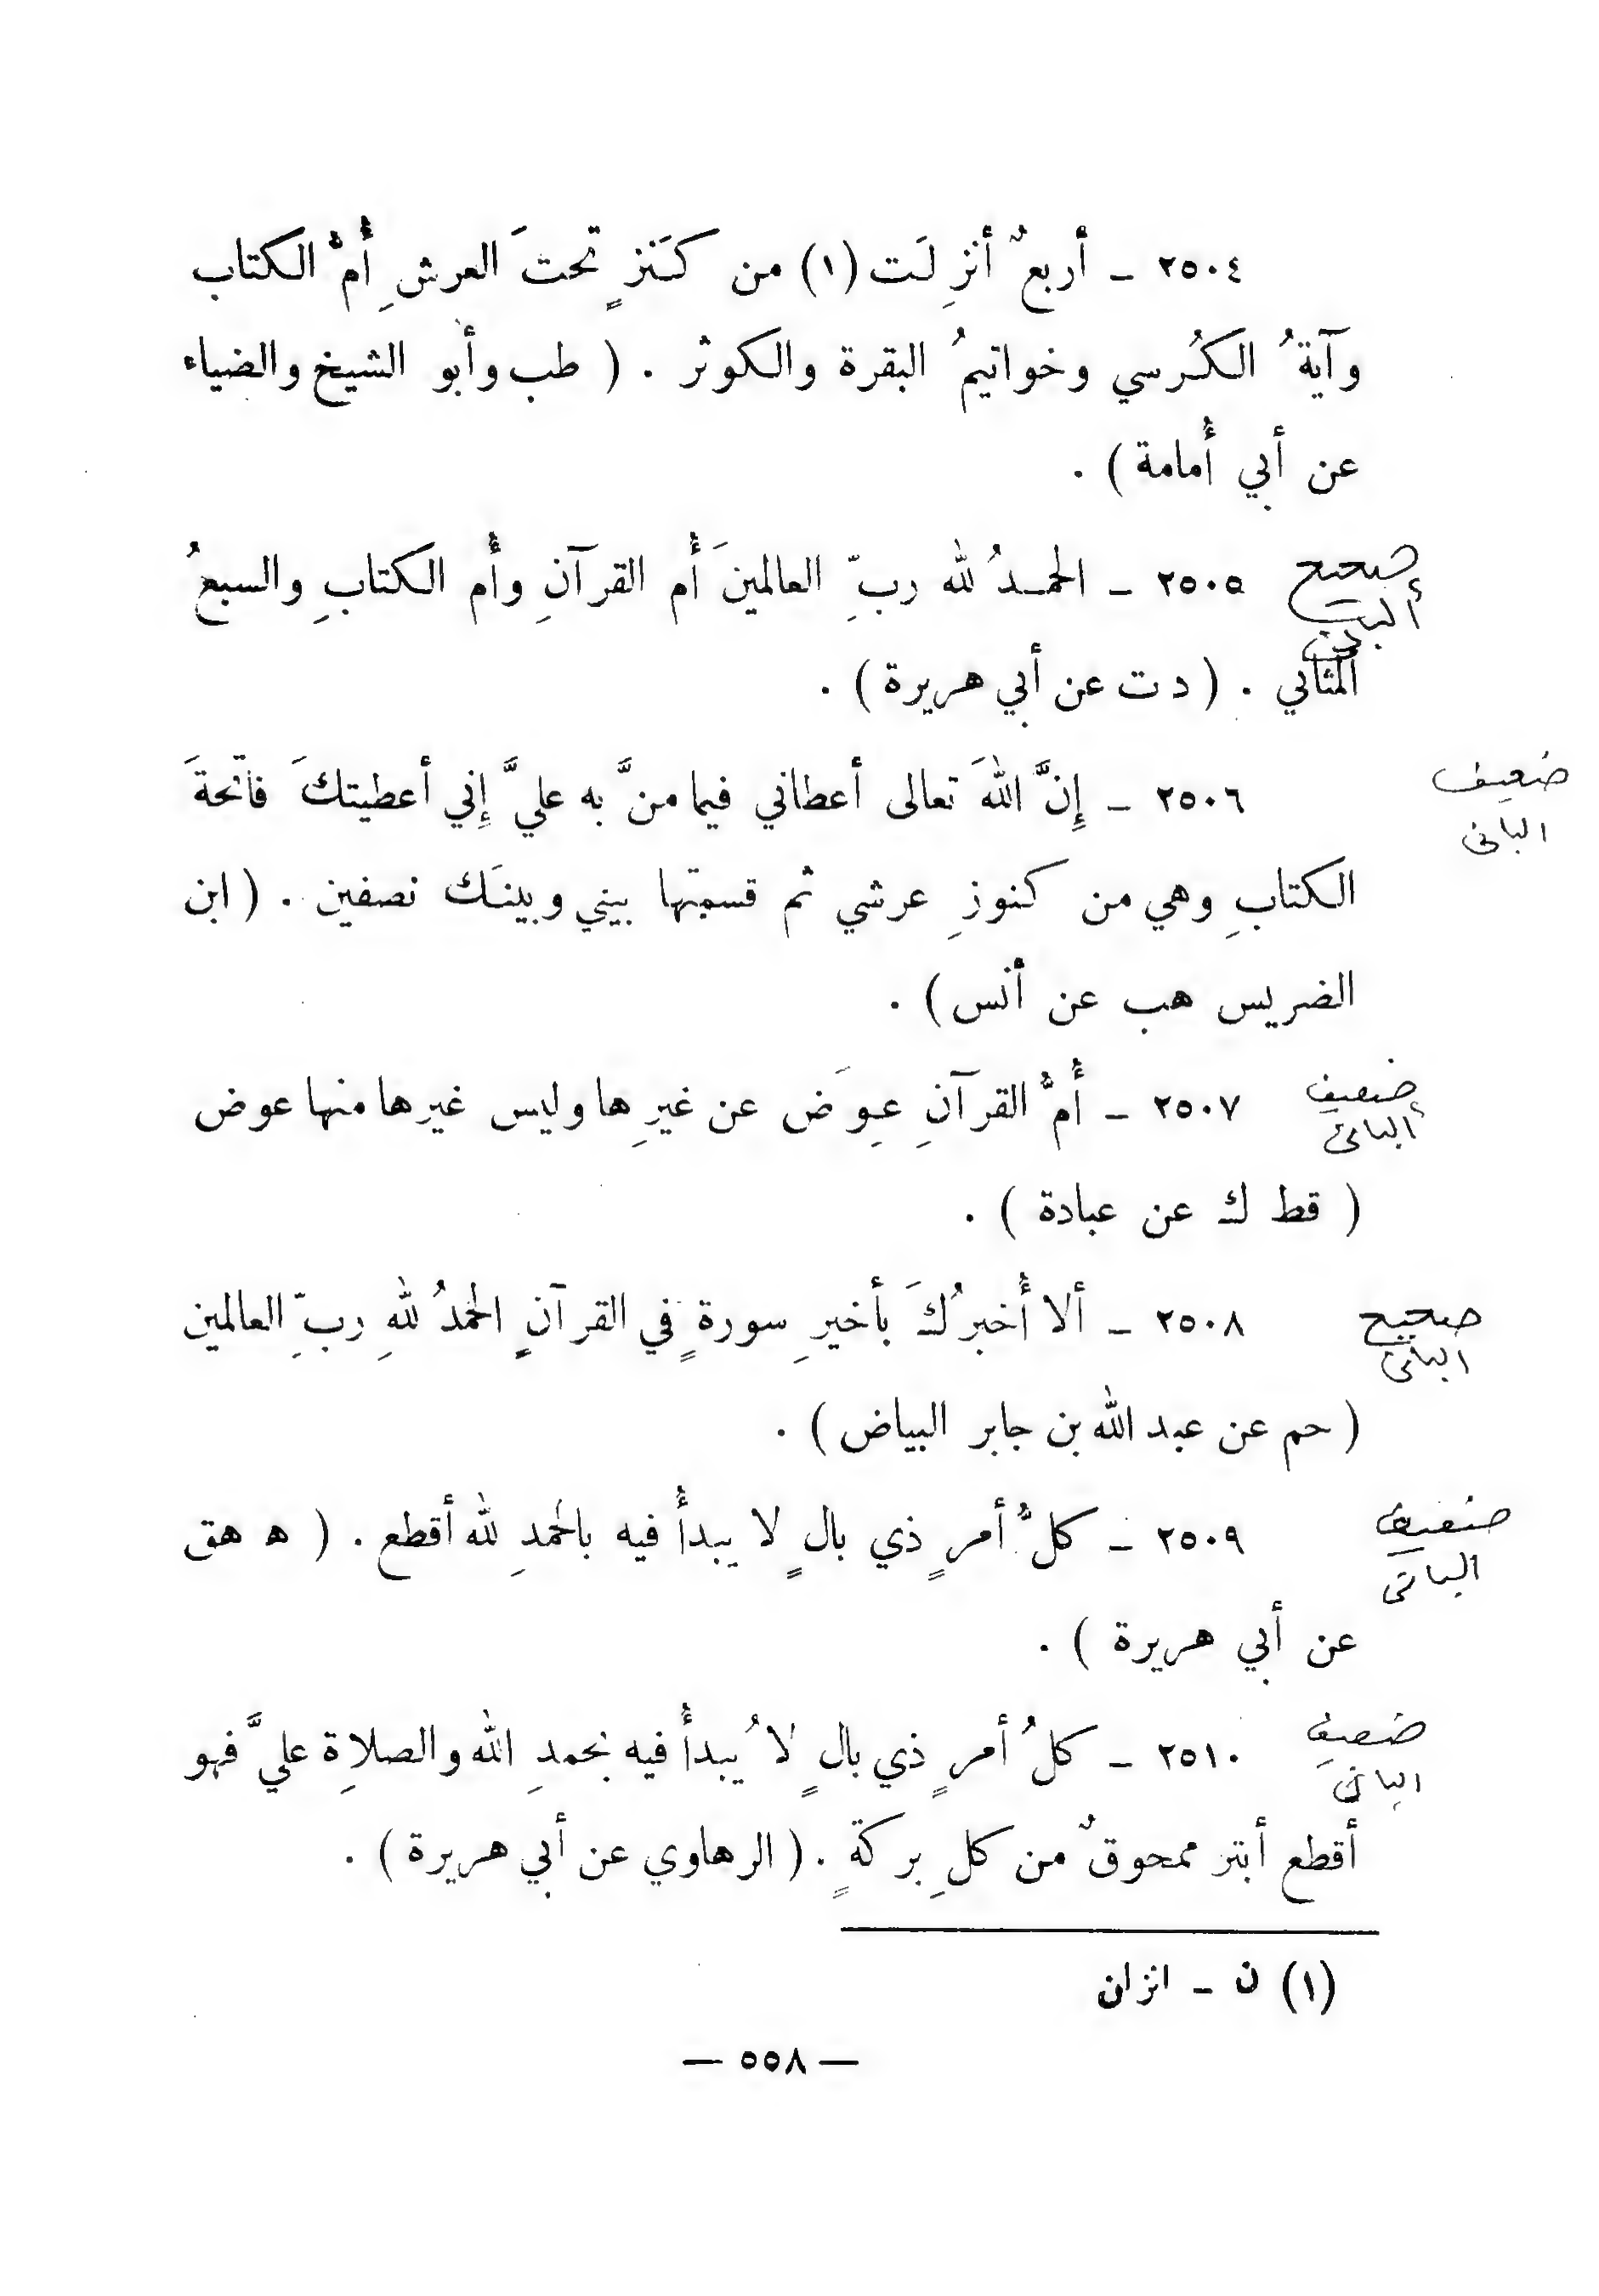 ٢٥٠٤ ـ أربعٌ أنزِلَت (١) من كَنزٍ تحتَ العرشِ أُمُّ الكتاب
وآيةُ الكُرسي وخواتيمُ البقرة والكوثر . ( طب وأبو الشيخ والضياء
عن أبي أُمامة ) .
صحيح ٢٥٠٥ ـ الحمـدُ لله ربِّ العالمينَ أُم القرآنِ وأُم الكتابِ والسبعُ
ألباني
المثاني . ( د ت عن أبي هريرة ) .
ضعيف ٢٥٠٦ ـ إِنَّ اللهَ تعالى أعطاني فيما منَّ به عليَّ إِني أعطيتكَ فاتحةَ
البانى
الكتابِ وهي من كنوزِ عرشي ثم قسمتها بيني وبينَك نصفين . ( ابن
الضريس هب عن أنس ) .
ضعيف ٢٥٠٧ ـ أُمُّ القرآنِ عِوَض عن غيرِها وليس غيرها منها عوض
ألبانى
( قط ك عن عبادة ) .
صحيح ٢٥٠٨ ـ ألا أُخبرُكَ بأخيرِ سورةٍ في القرآنِ الحمدُ للهِ ربِّ العالمين
البانى
( حم عن عبد الله بن جابر البياض ) .
ضعيف ٢٥٠٩ ـ كلُّ أمرٍ ذي بالٍ لا يبدأُ فيه بالحمدِ لله أقطع . ( ه هق
البانى
عن أبي هريرة ) .
ضعيف ٢٥١٠ ـ كلُ أمرٍ ذي بالٍ لا يُبدأُ فيه بحمدِ الله والصلاةِ عليَّ فهو
البانى
أقطع أبتر ممحوقٌ من كلِ بركةٍ . ( الرهاوي عن أبي هريرة ) .
(١) ن ـ انزان
— ٥٥٨ —